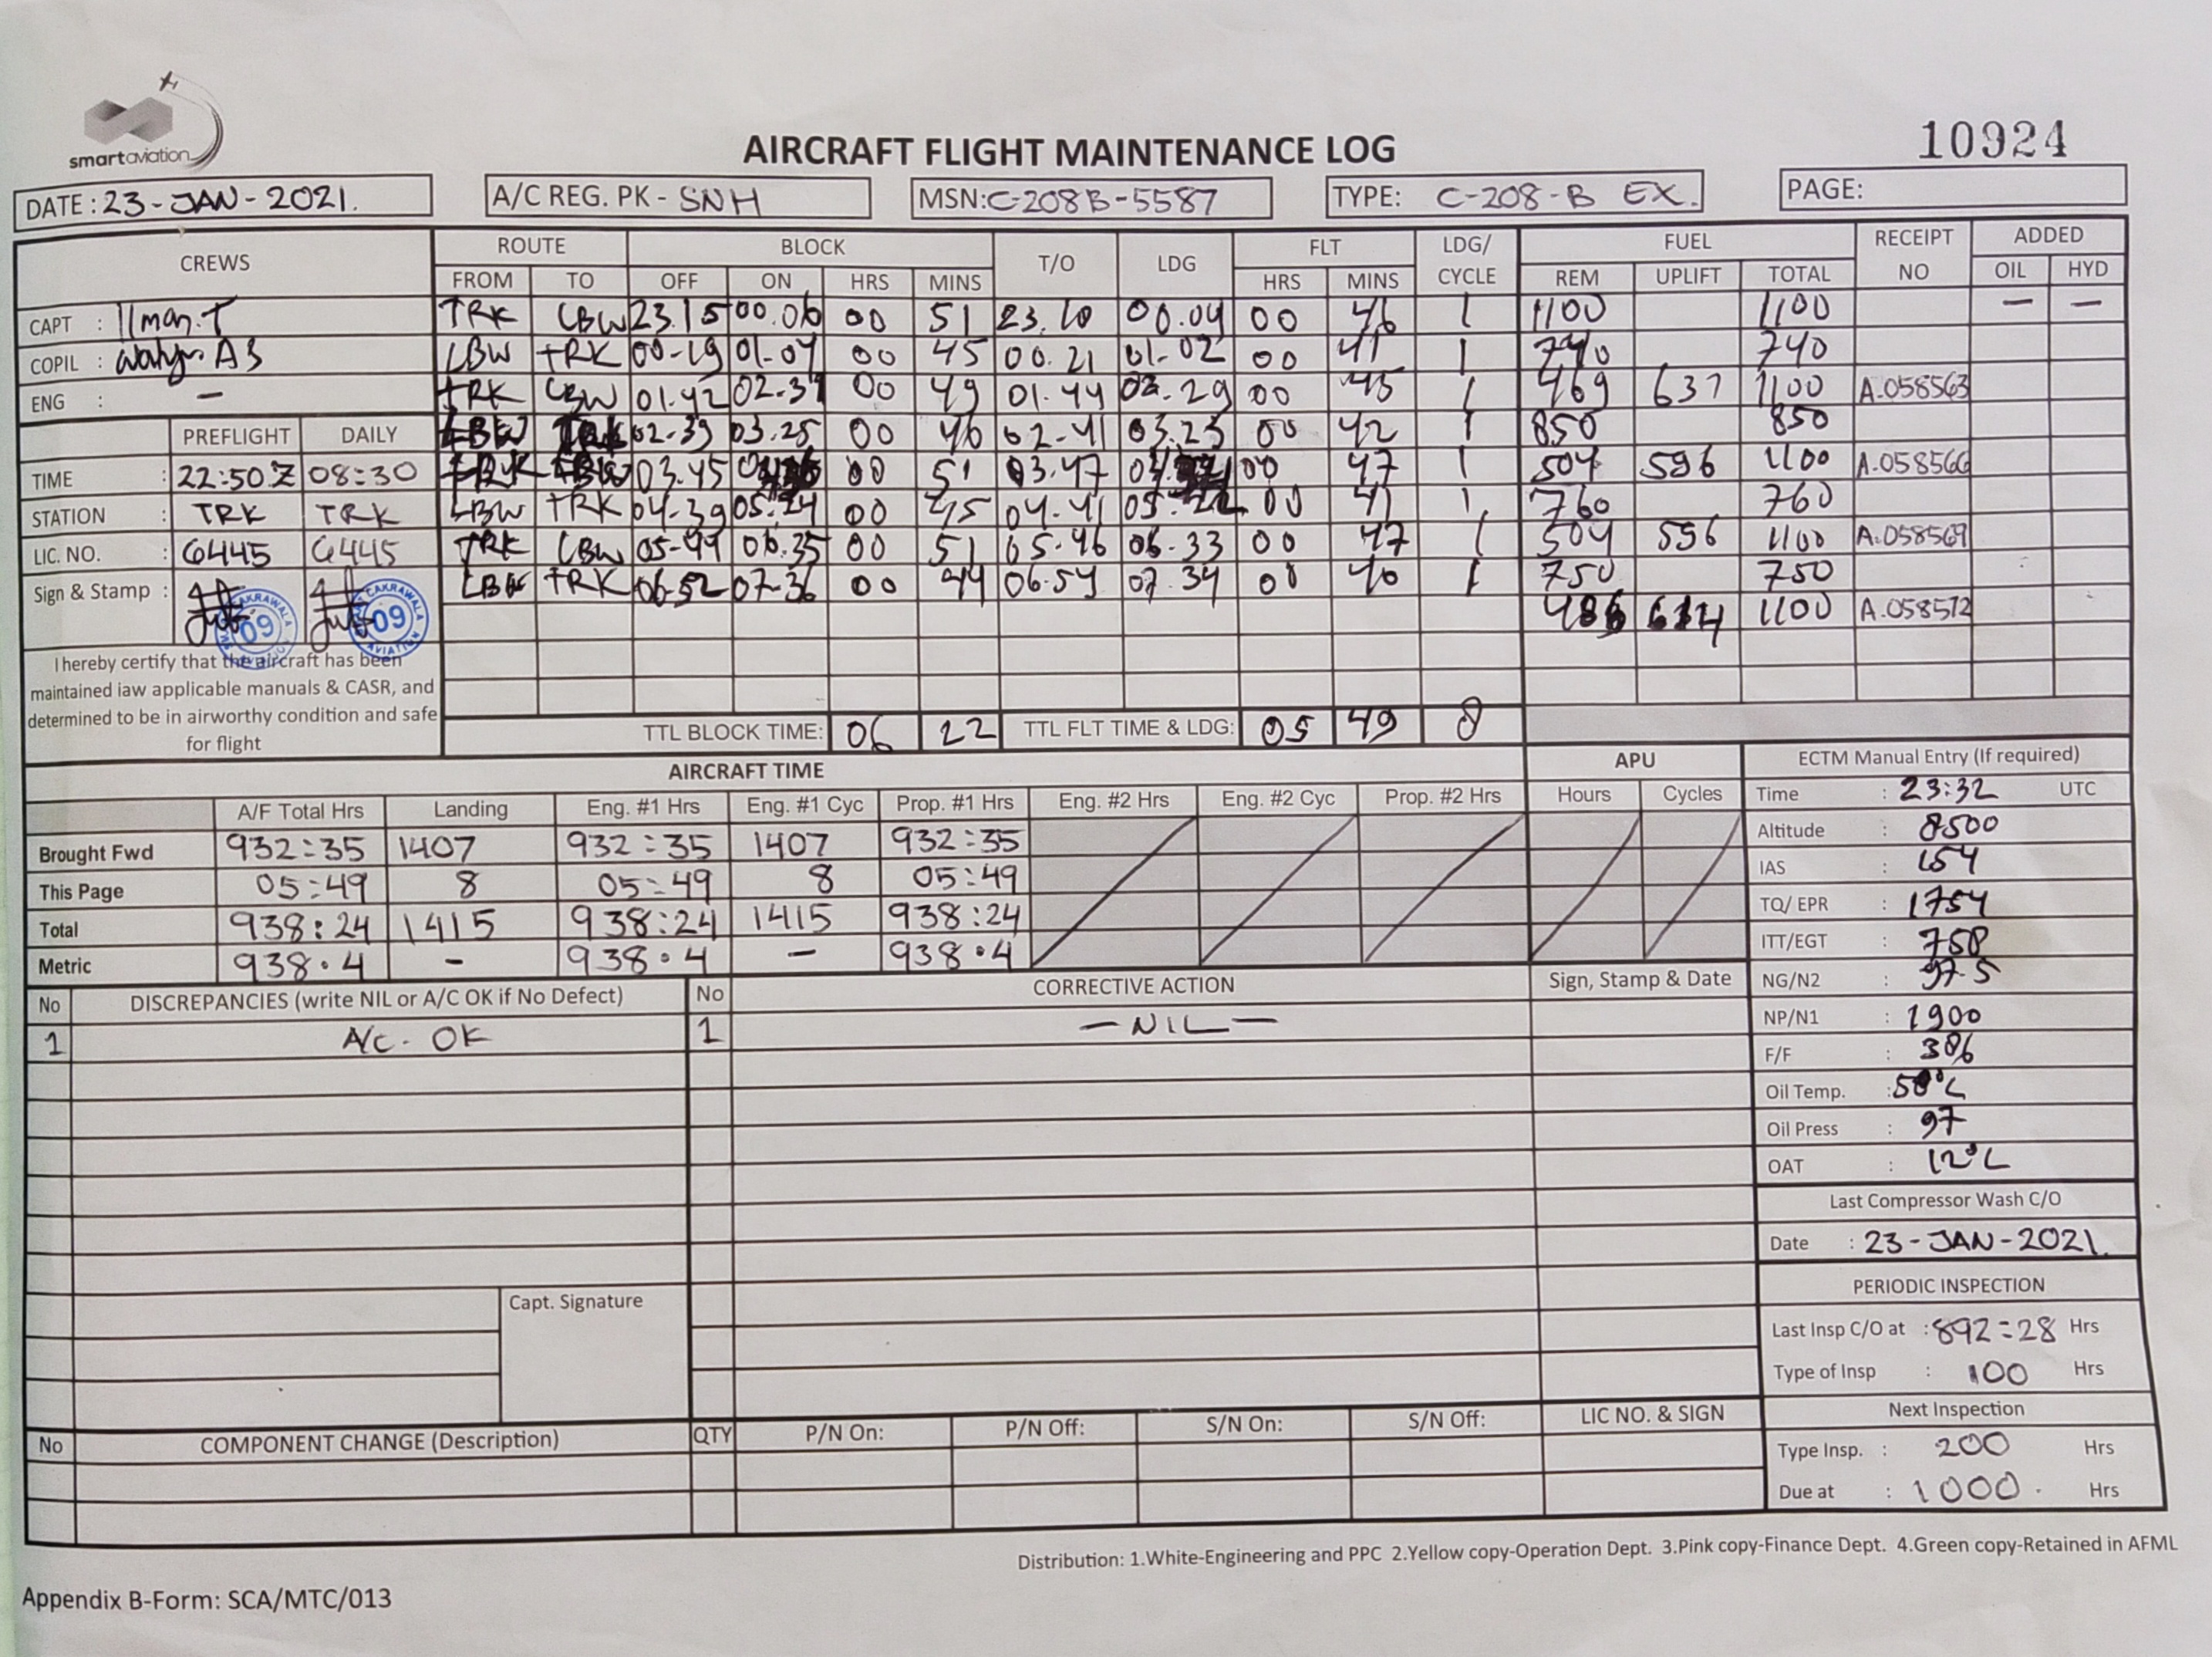 smartaviation
AIRCRAFT FLIGHT MAINTENANCE LOG
10924
DATE : 23-JAN-2021.
A/C REG. PK - SNH
MSN: C-208B-5587
TYPE: C-208-B EX.
PAGE:
CREWS
ROUTE BLOCK T/O LDG FLT LDG/CYCLE FUEL RECEIPT NO ADDED
FROM TO OFF ON HRS MINS HRS MINS REM UPLIFT TOTAL OIL HYD
CAPT : Ilman.T
COPIL : A3
ENG : –
TRK LBW 23.15 00.06 00 51 00.04 00 46 1 1100 1100 – –
LBW TRK 00-19 01-04 00 45 00.21 01-02 00 41 1 740 740
TRK LBW 01.42 02-31 00 49 01.44 02.29 00 45 1 469 631 1100 A.058563
LBW TRK 02-39 03.25 00 46 02-41 03.23 00 42 1 850 850
TRK LBW 03.45 00 51 03.47 00 47 1 504 596 1100 A.058566
LBW TRK 04-39 05.24 00 45 04-41 05.22 00 41 1 760 760
TRK LBW 05-44 06.35 00 51 05.46 06.33 00 47 1 504 596 1100 A.058569
LBW TRK 06-52 07-36 00 44 06.54 07.34 00 40 1 750 750
486 614 1100 A.058572
PREFLIGHT DAILY
TIME : 22:50Z 08:30
STATION : TRK TRK
LIC. NO. : 6445 6445
Sign & Stamp :
CAKRAWALA AVIATION 09
I hereby certify that the aircraft has been
maintained iaw applicable manuals & CASR, and
determined to be in airworthy condition and safe
for flight
TTL BLOCK TIME: 06 22 TTL FLT TIME & LDG: 05 49 8
AIRCRAFT TIME
APU
A/F Total Hrs Landing Eng. #1 Hrs Eng. #1 Cyc Prop. #1 Hrs Eng. #2 Hrs Eng. #2 Cyc Prop. #2 Hrs Hours Cycles
Brought Fwd 932:35 1407 932:35 1407 932:35
This Page 05:49 8 05:49 8 05:49
Total 938:24 1415 938:24 1415 938:24
Metric 938.4 - 938.4 - 938.4
ECTM Manual Entry (If required)
Time : 23:32 UTC
Altitude : 8500
IAS : 154
TQ/ EPR : 1754
ITT/EGT : 758
NG/N2 : 97.5
NP/N1 : 1900
F/F : 386
Oil Temp. :
Oil Press : 97
OAT : 12°C
Last Compressor Wash C/O
Date : 23-JAN-2021.
PERIODIC INSPECTION
Last Insp C/O at : 892:28 Hrs
Type of Insp : 100 Hrs
Next Inspection
Type Insp. : 200 Hrs
Due at : 1000. Hrs
No DISCREPANCIES (write NIL or A/C OK if No Defect) No CORRECTIVE ACTION Sign, Stamp & Date
1 A/C. OK 1 – NIL –
Capt. Signature
No COMPONENT CHANGE (Description) QTY P/N On: P/N Off: S/N On: S/N Off: LIC NO. & SIGN
Distribution: 1.White-Engineering and PPC 2.Yellow copy-Operation Dept. 3.Pink copy-Finance Dept. 4.Green copy-Retained in AFML
Appendix B-Form: SCA/MTC/013